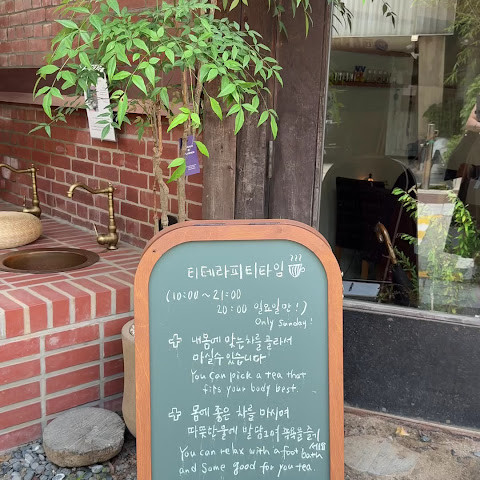 티테라피티타임
(10:00~21:00
20:00 일요일만!)
Only Sunday!
내몸에 맞는차를 골라서
마실수 있습니다
You can pick a tea that
fits your body best.
몸에 좋은 차를 마시며
따뜻한물에 발 담그며 족욕을 즐기
세요
You can relax with a foot bath
and some good for you tea.